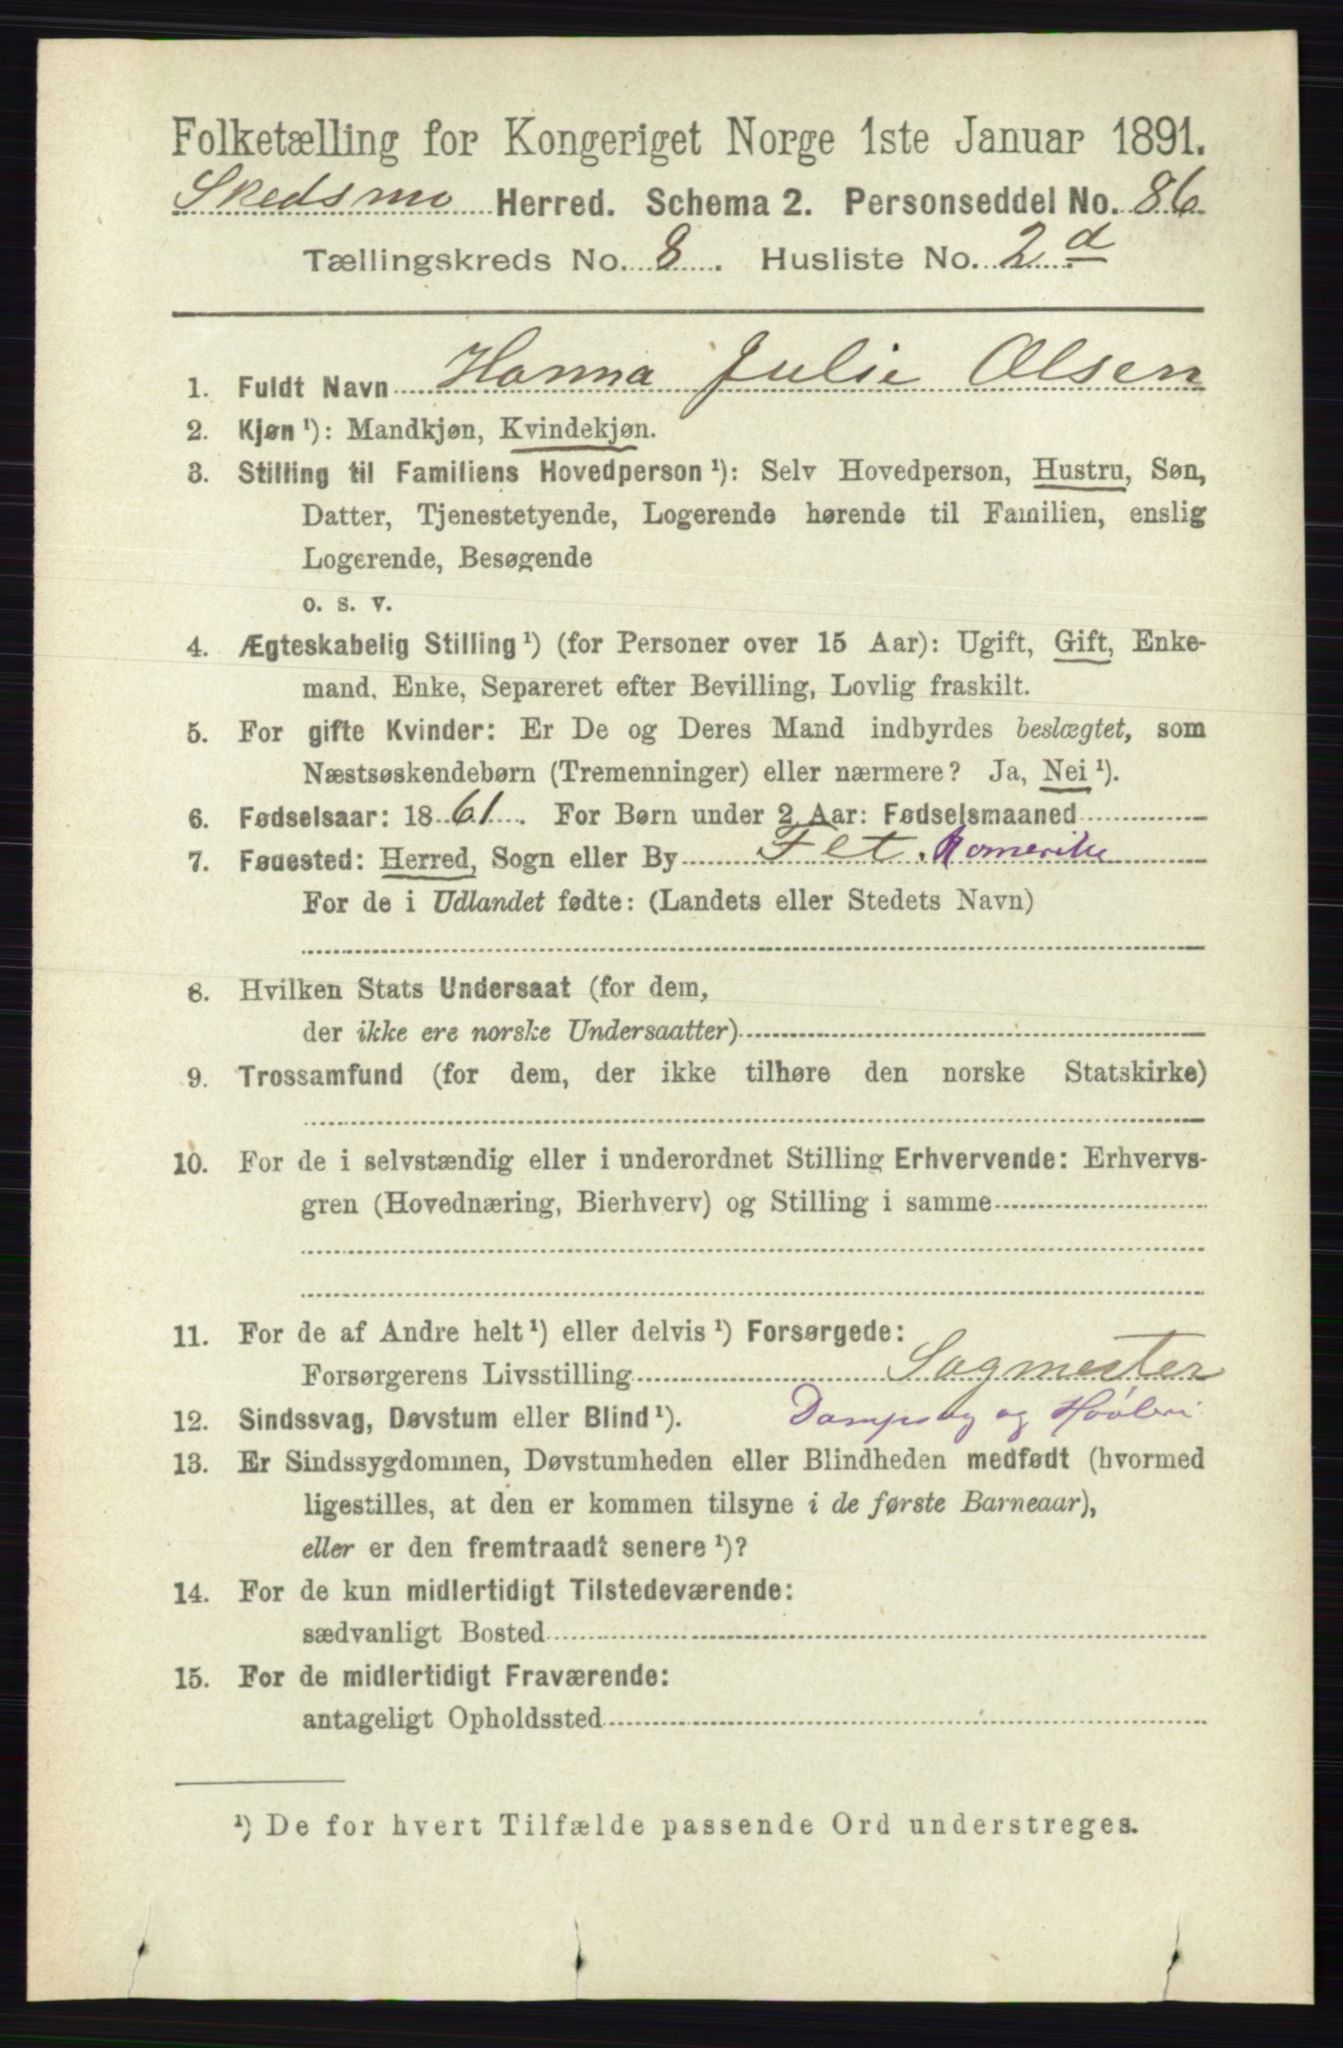 Folketælling for Kongeriget Norge 1ste Januar 1891.
Skedsmo Herred. Schema 2. Personseddel No. 86
Tællingskreds No. 8. Husliste No. 2 d
1. Fuldt Navn Hanna Julie Olsen
2. Kjøn ¹): Mandkjøn, Kvindekjøn.
3. Stilling til Familiens Hovedperson ¹): Selv Hovedperson, Hustru, Søn,
Datter, Tjenestetyende, Logerende hørende til Familien, enslig
Logerende, Besøgende
o. s. v.
4. Ægteskabelig Stilling ¹) (for Personer over 15 Aar): Ugift, Gift, Enke-
mand, Enke, Separeret efter Bevilling, Lovlig fraskilt.
5. For gifte Kvinder: Er De og Deres Mand indbyrdes beslægtet, som
Næstsøskendebørn (Tremenninger) eller nærmere? Ja, Nei ¹).
6. Fødselsaar: 1861. For Børn under 2 Aar: Fødselsmaaned
7. Fødested: Herred, Sogn eller By Fet. Romerike
For de i Udlandet fødte: (Landets eller Stedets Navn)
8. Hvilken Stats Undersaat (for dem,
der ikke ere norske Undersaatter)
9. Trossamfund (for dem, der ikke tilhøre den norske Statskirke)
10. For de i selvstændig eller i underordnet Stilling Erhvervende: Erhvervs-
gren (Hovednæring, Bierhverv) og Stilling i samme
11. For de af Andre helt ¹) eller delvis ¹) Forsørgede:
Forsørgerens Livsstilling Sagmester
12. Sindssvag, Døvstum eller Blind ¹). Dampsag og Høvleri
13. Er Sindssygdommen, Døvstumheden eller Blindheden medfødt (hvormed
ligestilles, at den er kommen tilsyne i de første Barneaar),
eller er den fremtraadt senere ¹)?
14. For de kun midlertidigt Tilstedeværende:
sædvanligt Bosted
15. For de midlertidigt Fraværende:
antageligt Opholdssted
¹) De for hvert Tilfælde passende Ord understreges.